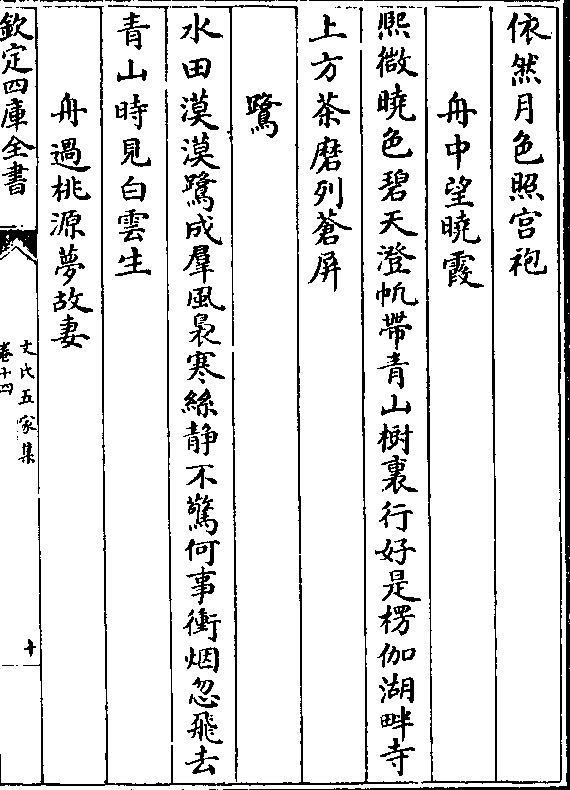 依然月色照宫袍
舟中望曉霞
熙微曉色碧天澄帆帶青山樹裏行好是楞伽湖畔寺
上方茶磨列蒼屏
鷺
水田漠漠鷺成羣風裊寒絲静不驚何事衝烟忽飛去
青山時見白雲生
舟過桃源夢故妻
欽定四庫全書
文氏五家集
卷十四
十